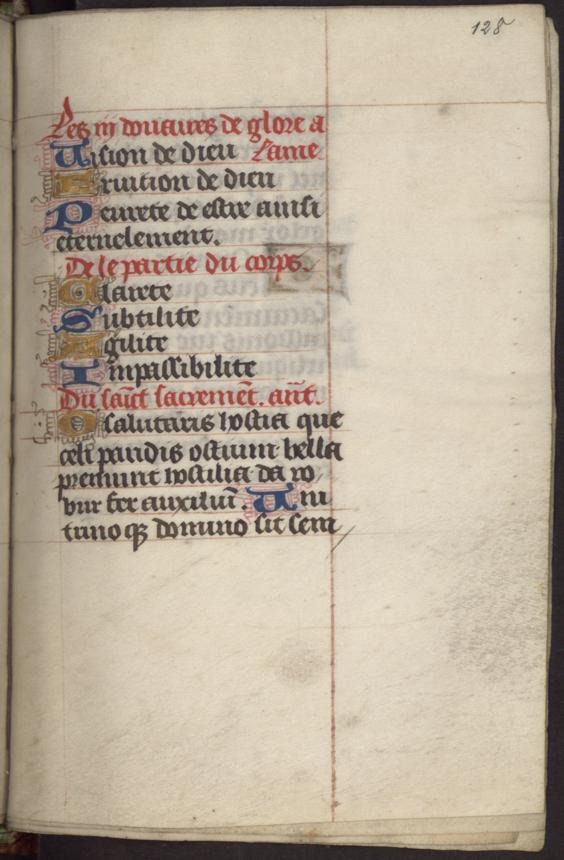 128
Les iii douaires de glore a
Uision de dieu Lame
Fruition de dieu
Seurete de estre ainsi
eternelement.
De le partie du corps.
Clarete
Subtilite
Agilite
Impassibilite
Du sai̅ct sacreme̅t. an̅t.
O salutaris hostia que
celi pandis ostium bella
premunt hostilia da ro
bur fer auxiliu̅. Uni
trino qꝫ domino sit sem